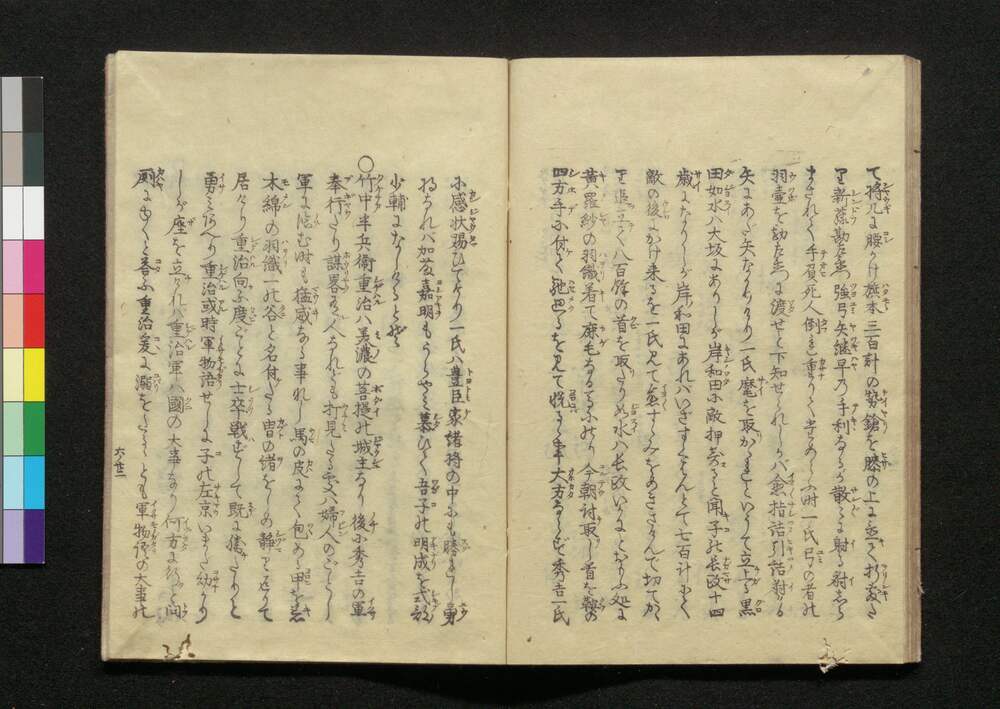 て将几に腰かけ旗本三百計の勢鎗を膝の上に並て折敷た
り新藤勘左衛門強弓矢継早の手利なるが散々に射る射しら
まされて手負死人倒れ重りて
羽壷を勘左衛門に渡せと下知せられしかバ愈指詰引詰射る
矢にあだ矢なかりけり一氏麾を取かさといて立上る黒
田如水ハ大坂にありしが岸和田に敵押寄ると聞子の長政十四
歳になりしが岸和田にあれバいざすくはんとて七百計にて
敵の後にかけ来るを一氏見て
を追立て八百餘の首を取たりぬ水ハ長政いかにとおもふ処に
黄羅紗の羽織着て鹿毛なる馬にのり今朝討取し首を鞍の
四方手に付て馳巴るを見て悦るゝ事大方ならず秀吉一氏
に感状賜ひてけり一氏ハ豊臣家諸将の中にも勝れし勇
将なれバ加藤嘉明もうらやみ慕ひて吾子の明成を式部
少輔になしけるとぞ
〇竹中半兵衛重治ハ美濃の菩提の城主なり後に秀吉の軍
奉行たり謀畧ある人なれども打見たる所ハ婦人のごとし
軍に臨む時も猛威なる事なし馬の皮にて包める甲を着
木綿の羽織一の谷と名付たる冑の緒をしめ静に返りて
居たり重治向ふ度ごとに士卒戦ずして既に勝たりと
勇みあへり重治或時軍物語せしに子の左京いまだ幼かり
しが座を立けれバ重治軍ハ國の大事なり何方に行しと問
厠にゆくと答ふ重治爰に溺をたるゝとも軍物語の大事の
六ノ廿二